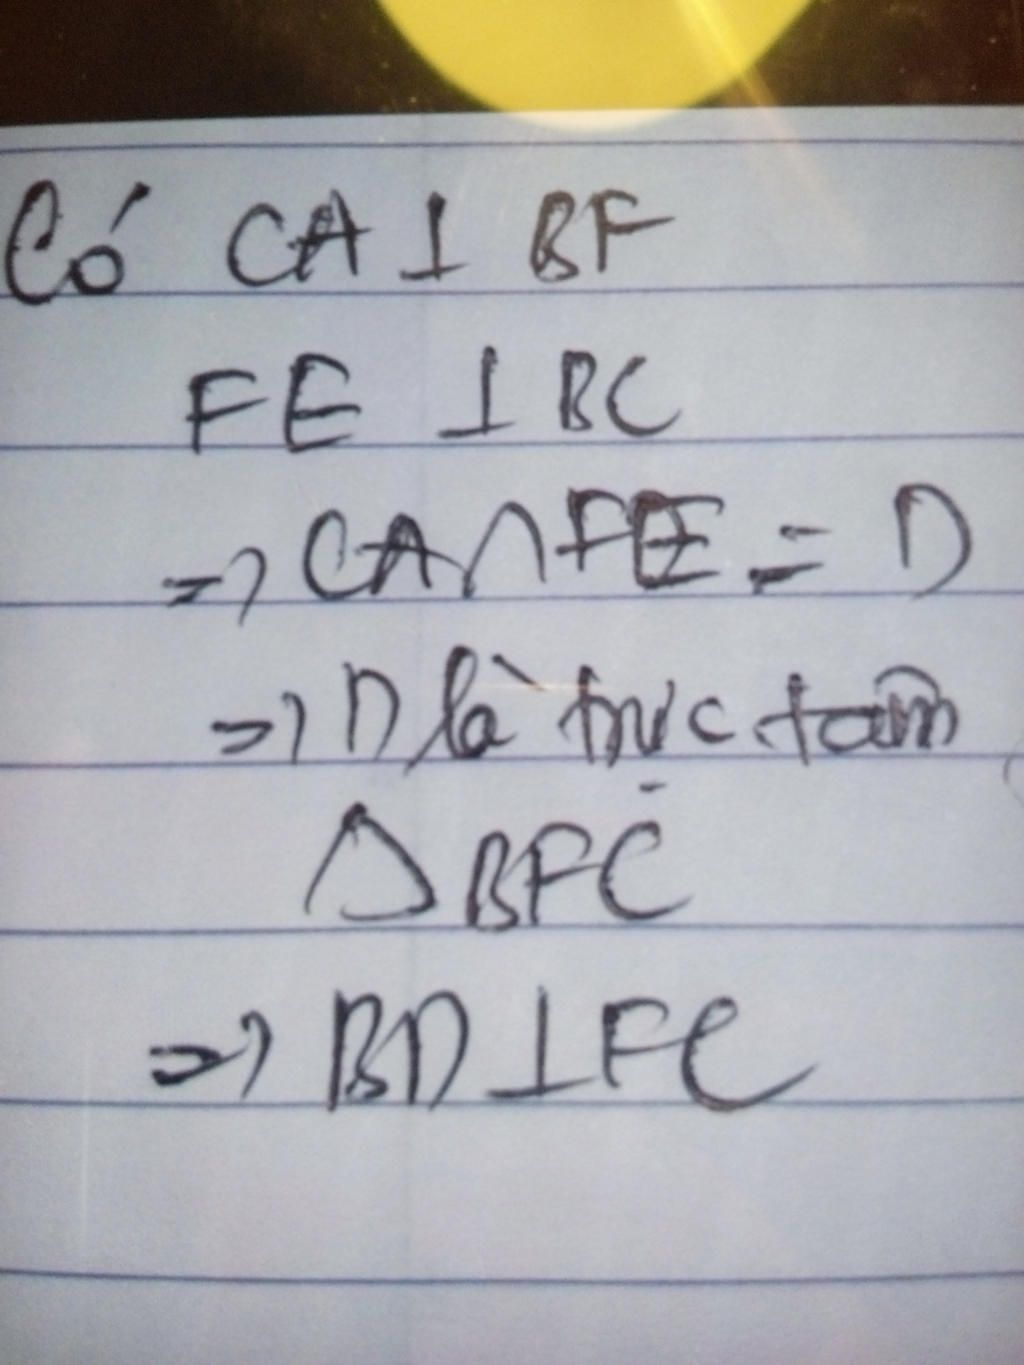 Có CA ⊥ BF
FE ⊥ BC
=> CA∩FE = D
=> D là trực tâm
△ BFC
=> BD ⊥ FC